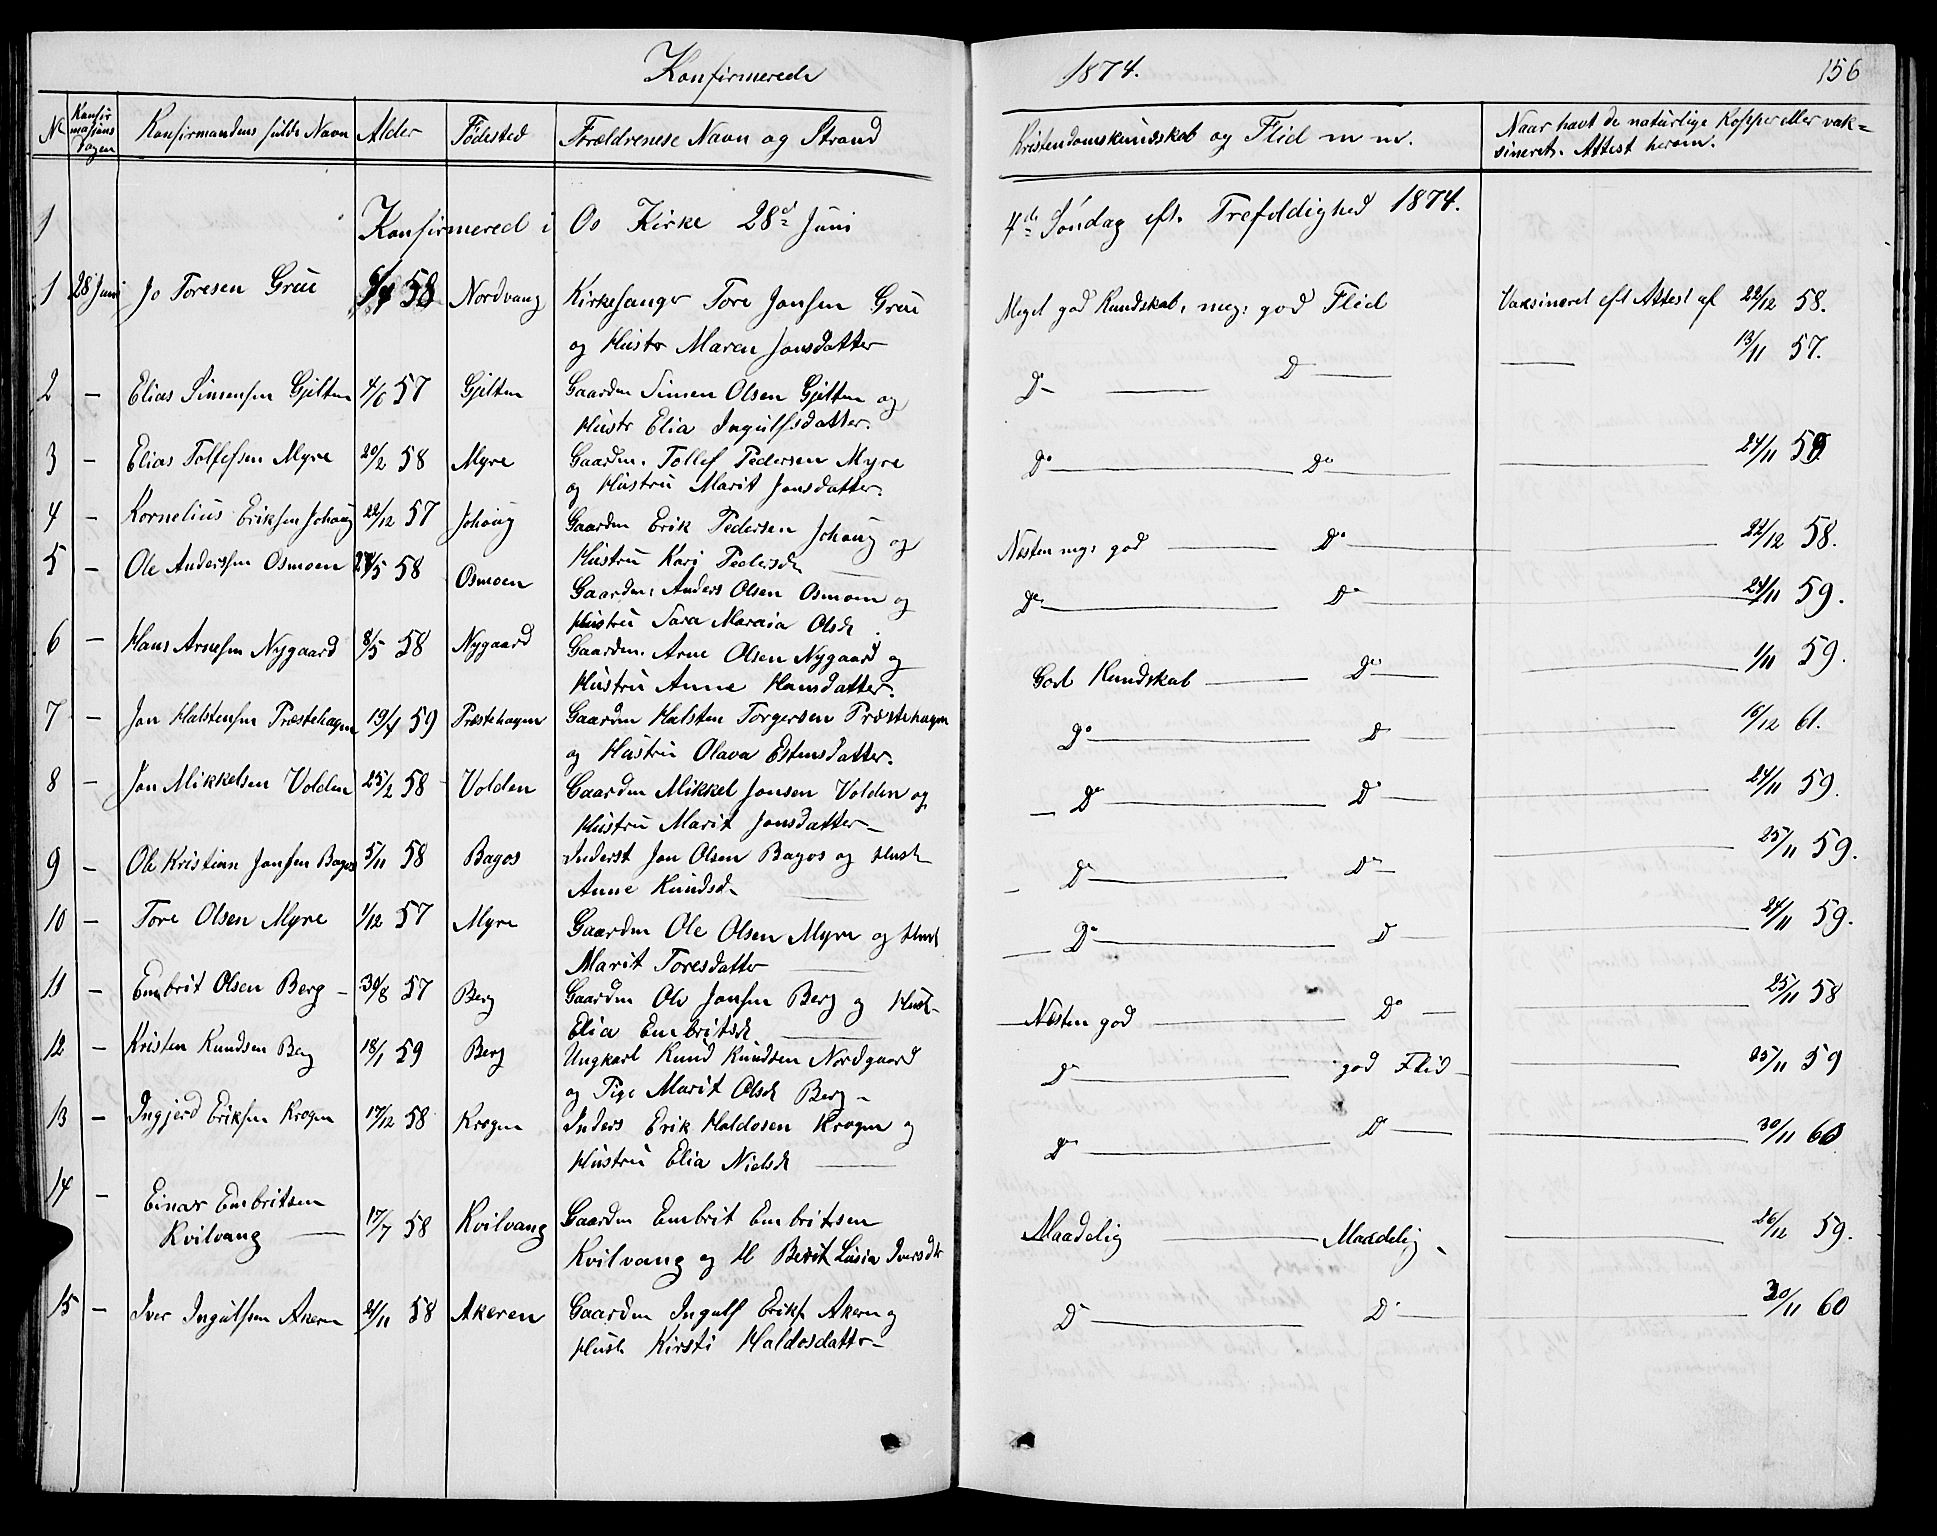 Konfirmerede 1874. 156
N Konfirmasjons Dagen Konfirmandens fulde Navn Alder Fødested Forældrenese Navn og Strand Kristendomskundskab og Flid m m. Naar havt de naturlige Kopper eller vaksineret. Attest herom.
1 Konfirmered i Os Kirke 28d Juni 4de Søndag eft. Trefoldighed 1874.
1 28 Juni Jo Toresen Grue 58 Nordvang Kirkesanger Tore Jonsen Grue Meget god Kundskab, meg: god Flid Vaksineret eft Attest af 22/12 58.
og Hustr Maren Jonsdatter
2 – Elias Simensen Gjelten 4/6 57 Gjelten Gaardm Simen Olsen Gjelten og Do Do 13/11 57.
Hustr Elia Ingulfsdatter.
3 – Elias Tollefsen Myre 20/2 58 Myre Gaardm. Tollef Pedersen Myre Do Do 24/11 59
og Hustru Marit Jonsdatter.
4 – Kornelius Eriksen Johaug 22/12 57 Johaug Gaardm Erik Pedersen Johaug og Nesten meg: god Do 22/12 58.
Hustru Kari Pedersd
5 – Ole Anderssen Osmoen 58 Osmoen Gaardm: Anders Olsen Osmoen og Do Do 24/11 59.
Hustru Sara Maraia Olsd.
6 – Hans Arnesen Nygaard 8/5 58 Nygaard Gaardm. Arne Olsen Nygaard og God Kundskab Do 1/11 59.
Hustru Anne Hansdatter.
7 – Jon Halstensen Præstehagen 19/4 59 Præstehagen Gaardm Halsten Torgersen Præstehagen Do Do 16/12 61.
og Hustru Olava Estensdatter.
8 – Jon Mikkelsen Volden 25/2 58 Volden Gaardm Mikkel Jonsen Volden og Do Do 24/11 59.
Hustru Marit Jonsdatter
9 – Ole Kristian Jonsen Bagos 5/11 58 Bagos Inderst Jon Olsen Bagos og Hust Do Do 25/11 59.
Anne Kundsd.
10 – Tore Olsen Myre 1/12 57 Myre Gaardm Ole Olsen Myre og Hust Do Do 24/11 59.
Marit Toresdatter
11 – Embrit Olsen Berg 30/8 57 Berg Gaardm Ole Jonsen Berg og Hust Nesten god Do 25/11 58
Elia Embritsd
12 – Kristen Kundsen Berg 18/1 59 Berg Ungkarl Kund Kundsen Nordgaard Do god Flid 25/11 59
og Pige Marit Olsd Berg
13 – Ingjerd Eriksen Krogen 17/12 58 Krogen Inders Erik Haldosen Krogen og Do Do 30/11 60
Hustru Elia Nielsd
14 – Einar Embritsen
Kvilvang 17/7 58 Kvilvang Gaardm Embrit Embritsen Maadelig Maadelig 26/12 59.
Kvilvang og H Berit Lusia Iversdtr
15 – Iver Ingulfsen Akeren 21/11 58 Akeren Gaardm Ingulf Eriks. Akeren og Do Do 30/11 60
Hust Kirsti Haldosdattr